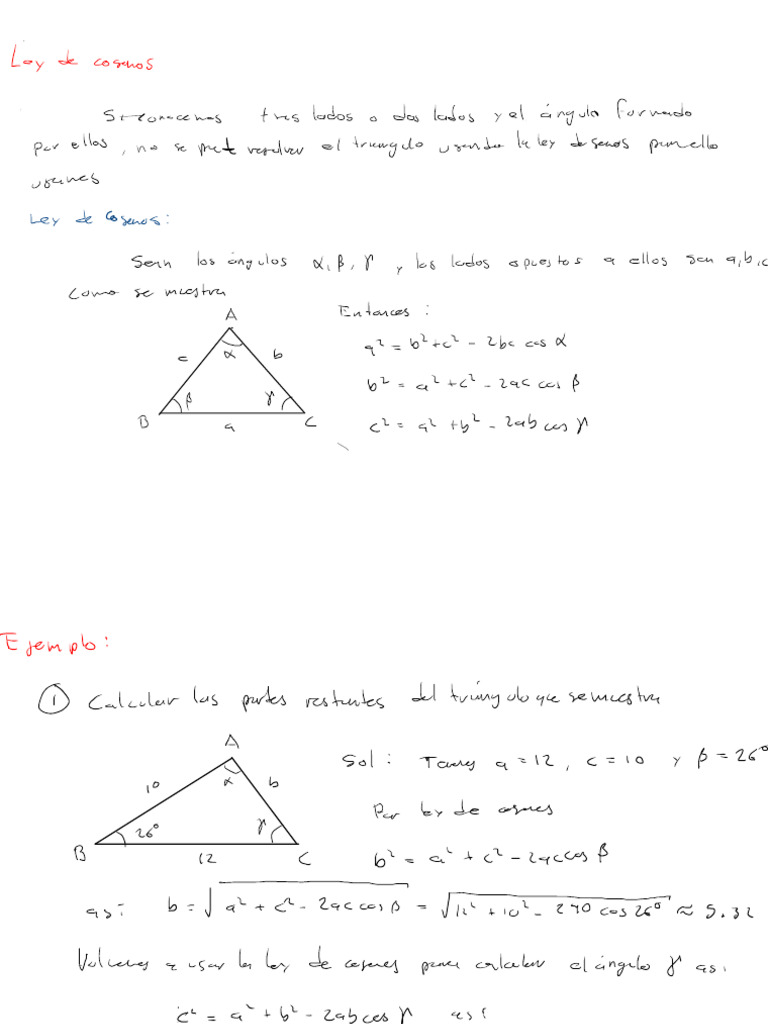 Ley de cosenos
Si conocemos tres lados o dos lados y el ángulo formado
por ellos, no se puede resolver el triangulo usando la ley de senos para ello
usamos
Ley de Cosenos:
Sean los ángulos α, β, γ y los lados opuestos a ellos sean a, b, c
Como se muestra
Entonces:
A
α
c
b
β
γ
B
a
C
a² = b² + c² - 2bc cos α
b² = a² + c² - 2ac cos β
c² = a² + b² - 2ab cos γ
Ejemplo:
① Calcular las partes restantes del triángulo que se muestra
A
10
α
b
26°
γ
B
12
C
Sol: Tenemos a = 12, c = 10 y β = 26°
Por ley de cosenos
b² = a² + c² - 2ac cos β
así: b = √(a² + c² - 2ac cos β) = √(12² + 10² - 240 cos 26°) ≈ 5.32
Volvemos a usar la ley de cosenos para calcular el ángulo γ así:
c² = a² + b² - 2ab cos γ así: